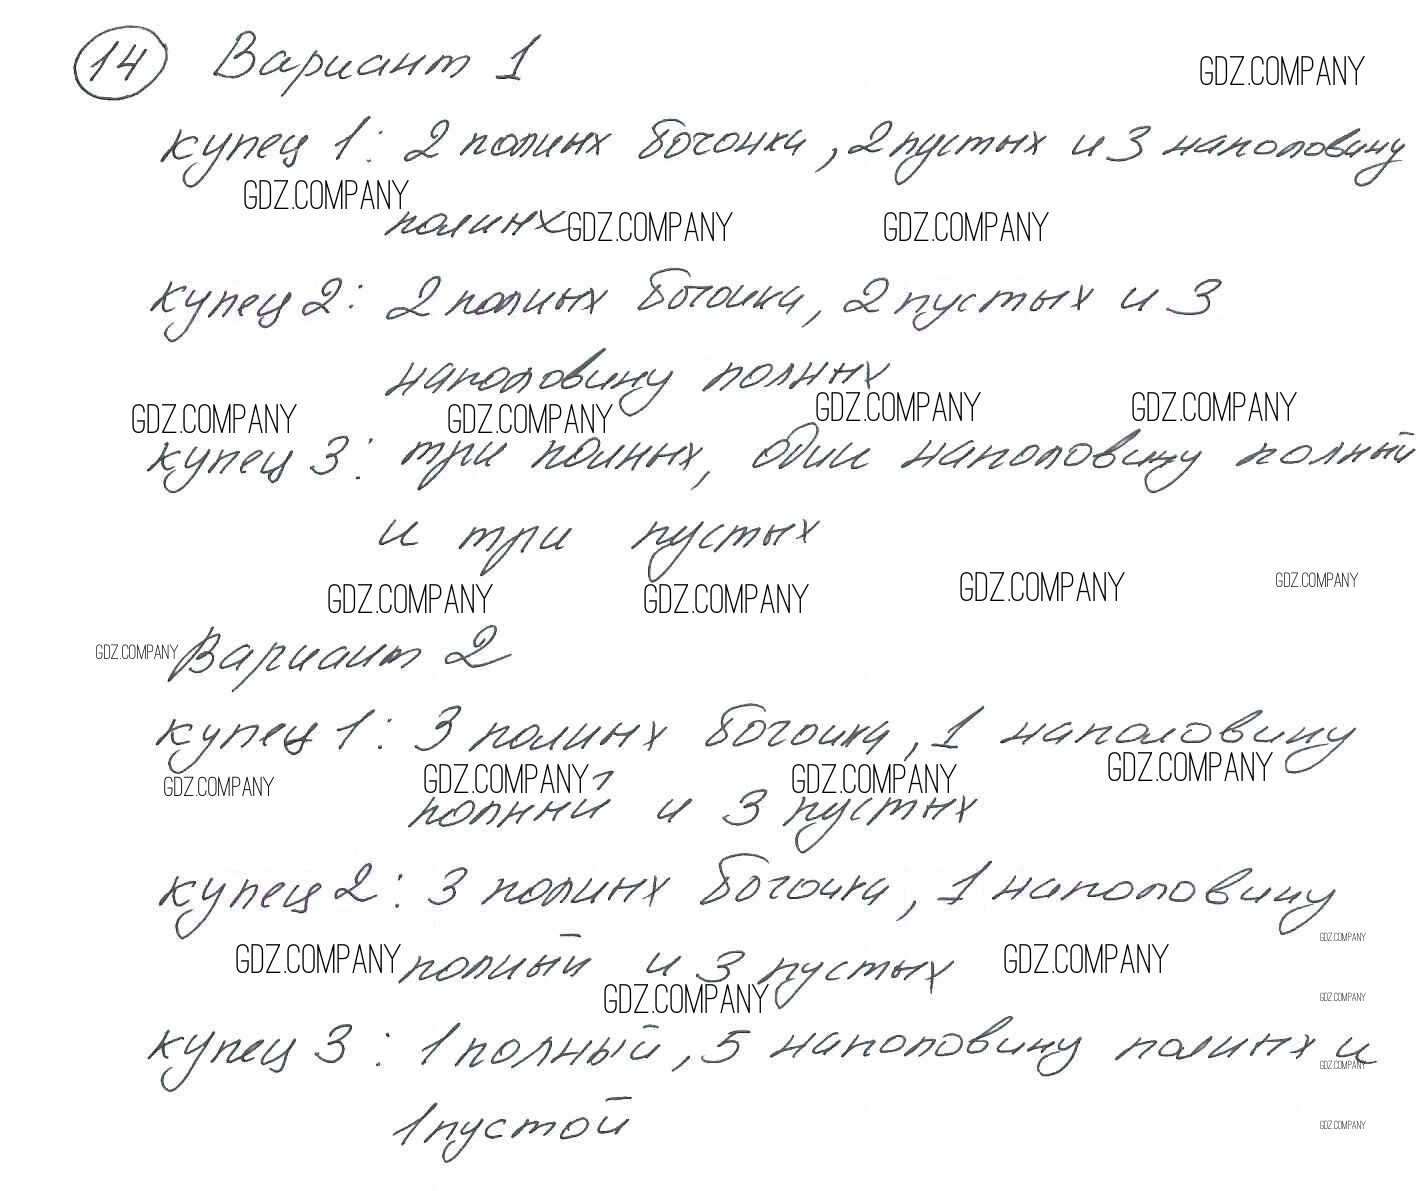 14 Вариант 1
GDZ.COMPANY
купец 1: 2 полных бочонка, 2 пустых и 3 наполовину
GDZ.COMPANY
полных GDZ.COMPANY GDZ.COMPANY
купец 2: 2 полных бочонка, 2 пустых и 3
наполовину полных
GDZ.COMPANY GDZ.COMPANY GDZ.COMPANY GDZ.COMPANY
купец 3: три полных, один наполовину полный
и три пустых
GDZ.COMPANY GDZ.COMPANY GDZ.COMPANY GDZ.COMPANY
GDZ.COMPANY Вариант 2
купец 1: 3 полных бочонка, 1 наполовину
GDZ.COMPANY GDZ.COMPANY GDZ.COMPANY GDZ.COMPANY
полный и 3 пустых
купец 2: 3 полных бочонка, 1 наполовину
GDZ.COMPANY
GDZ.COMPANY полный и 3 пустых GDZ.COMPANY
GDZ.COMPANY GDZ.COMPANY
купец 3: 1 полный, 5 наполовину полных и
GDZ.COMPANY
1 пустой
GDZ.COMPANY